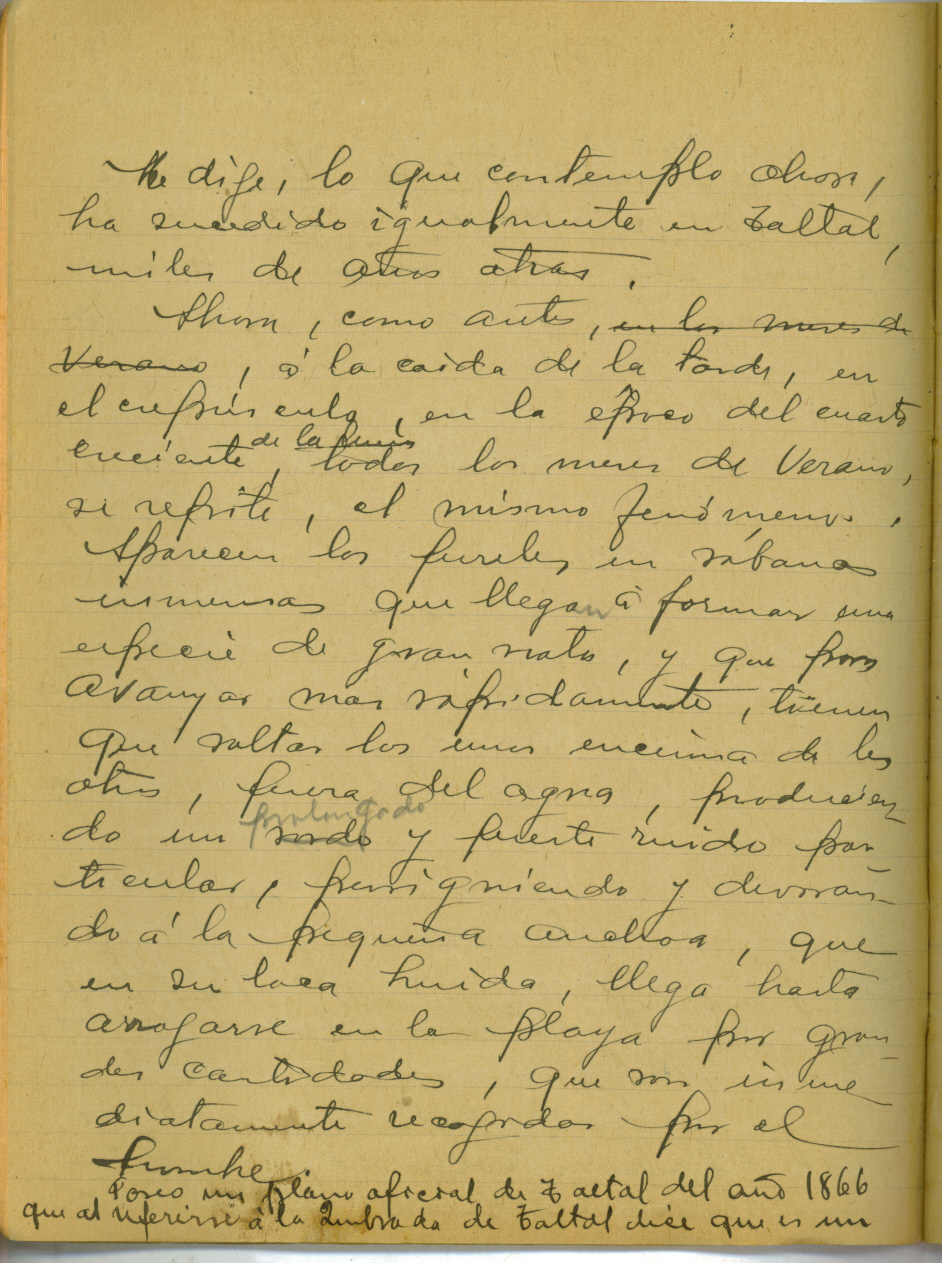 Me dije, lo que contemplo ahora,
ha sucedido igualmente en Taltal,
miles de años atras.
Ahora, como antes, en los meses de
Verano, á la caida de la tarde, en
el crepúsculo, en la época del cuarto
creciente de la luna, todos los meses de Verano,
se repite, el mismo fenómeno.
Aparecen los jureles en sábanas
inmensas que llegan á formar una
especie de gran nata, y que para
avanzar mas rápidamente, tienen
que saltar los unos encima de los
otros, fuera del agua, producien-
prolongado
do un sordo y fuerte ruido par-
ticular, persiguiendo y devoran-
do á la pequeña anchoa, que
en su loca huida, llega hasta
arrojarse en la playa por gran-
des cantidades, que son inme-
diatamente recogidas por el
hombre.
Poseo un plano oficial de Taltal del año 1866
que al referirse á la Quebrada de Taltal dice que es un